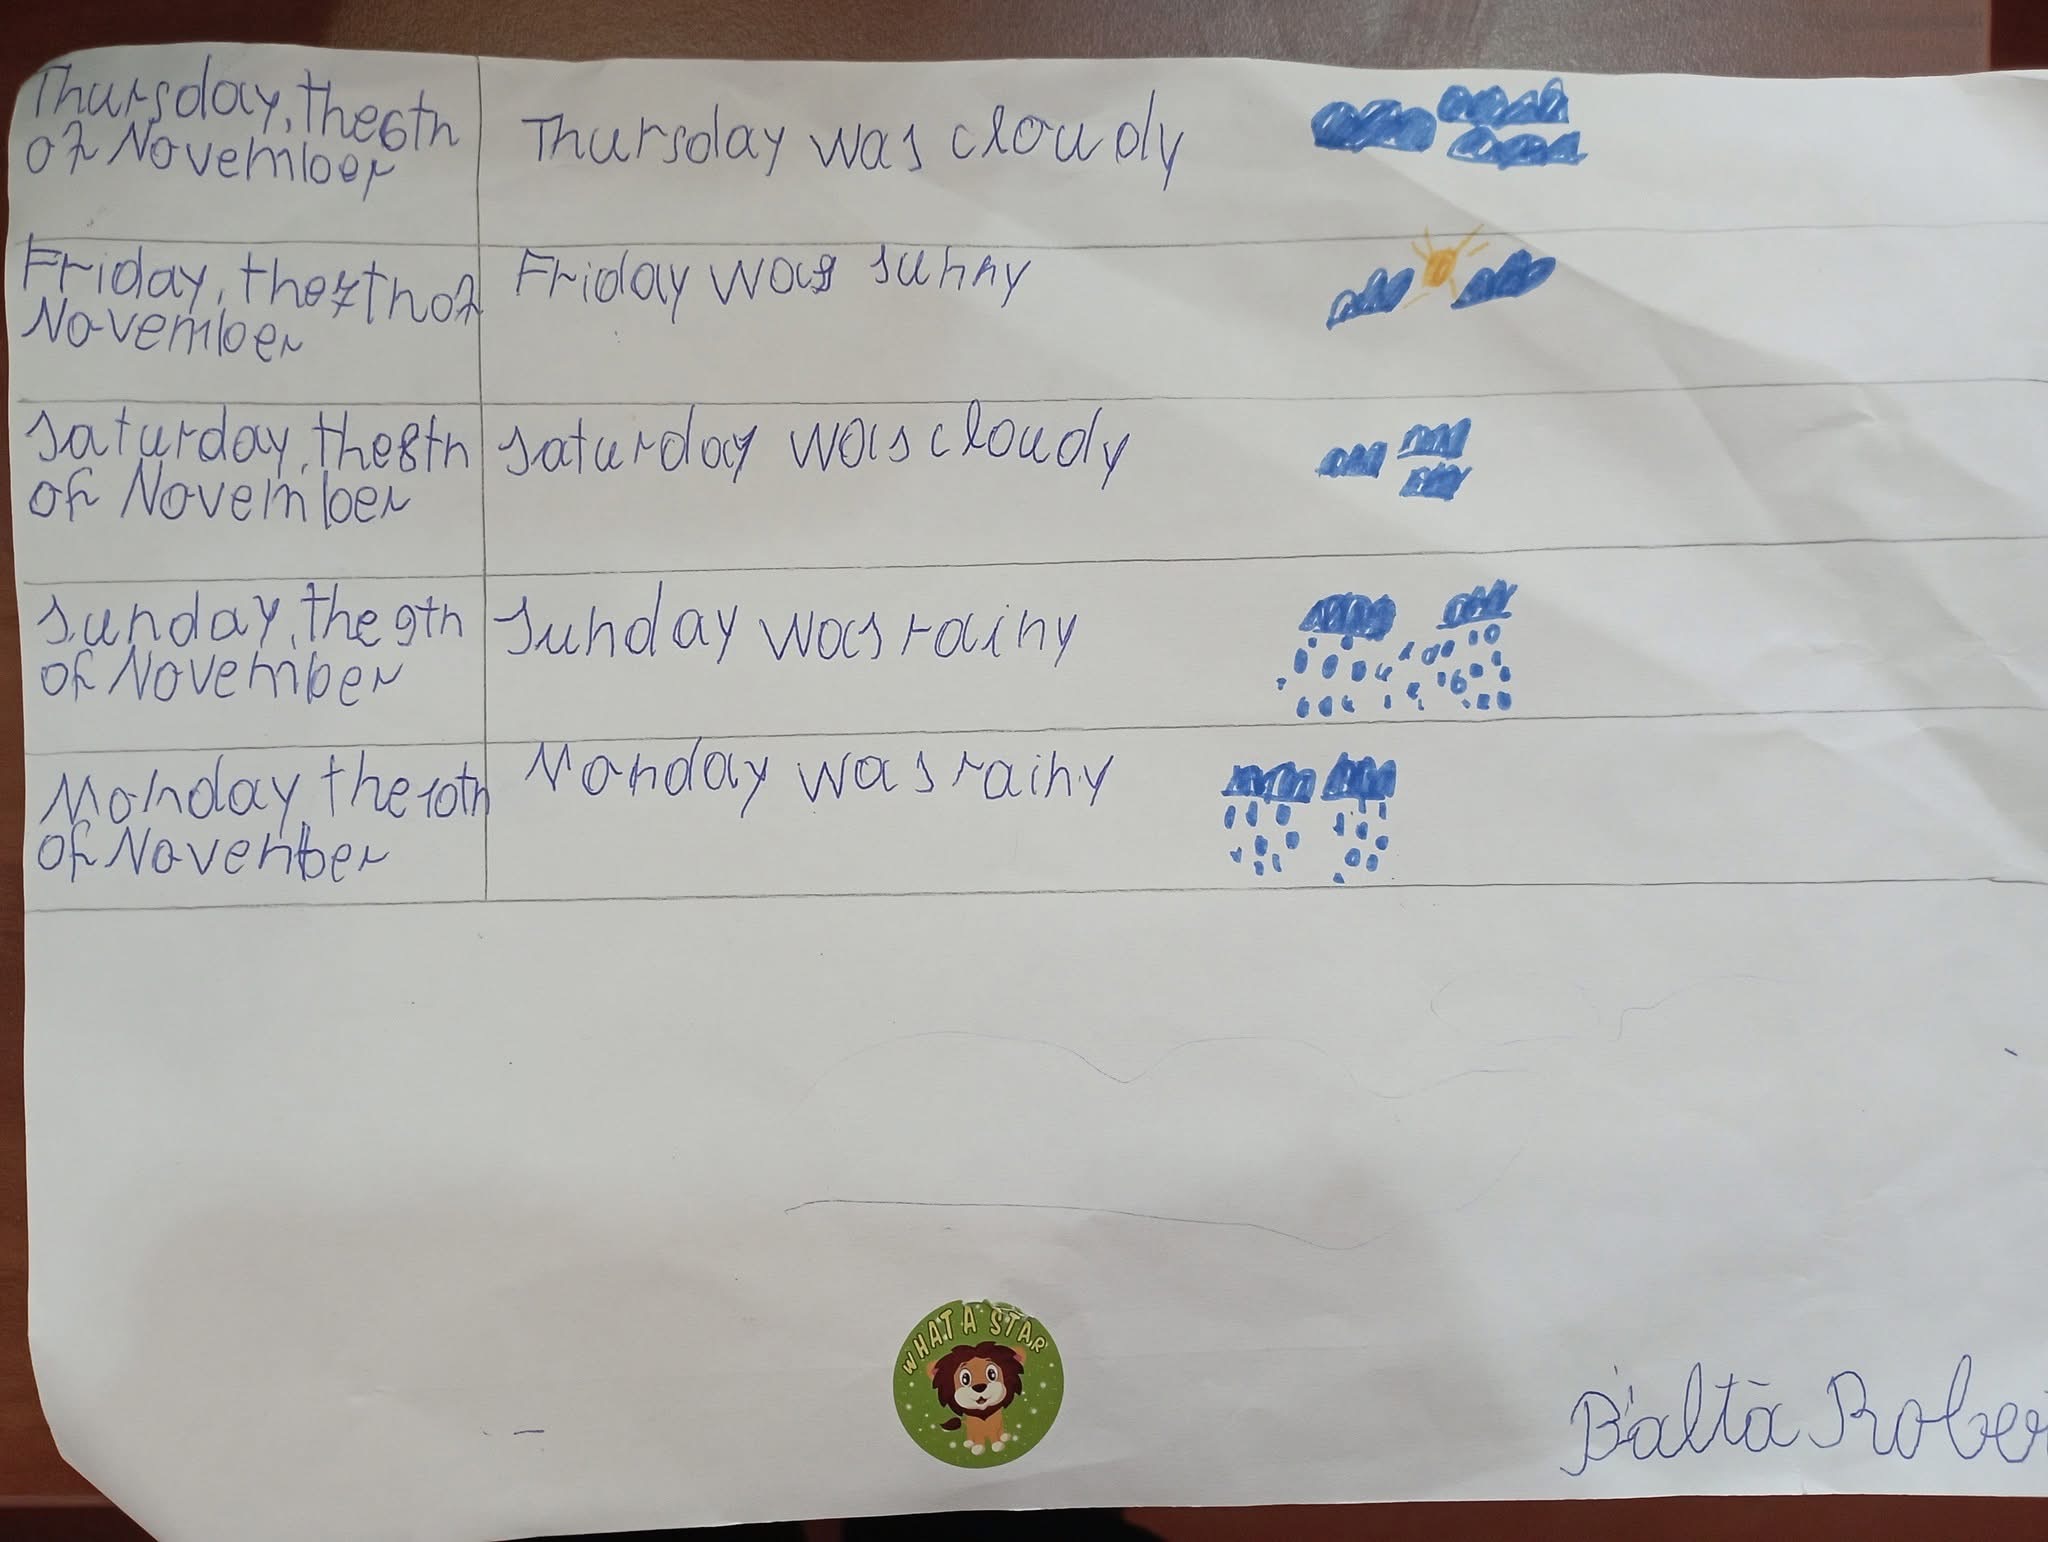 Thursday, the 6th
of November
Thursday was cloudy
Friday, the 7th of
November
Friday was sunny
Saturday, the 8th
of November
Saturday was cloudy
Sunday, the 9th
of November
Sunday was rainy
Monday the 10th
of November
Monday was rainy
WHAT A STAR
Baltă Rober